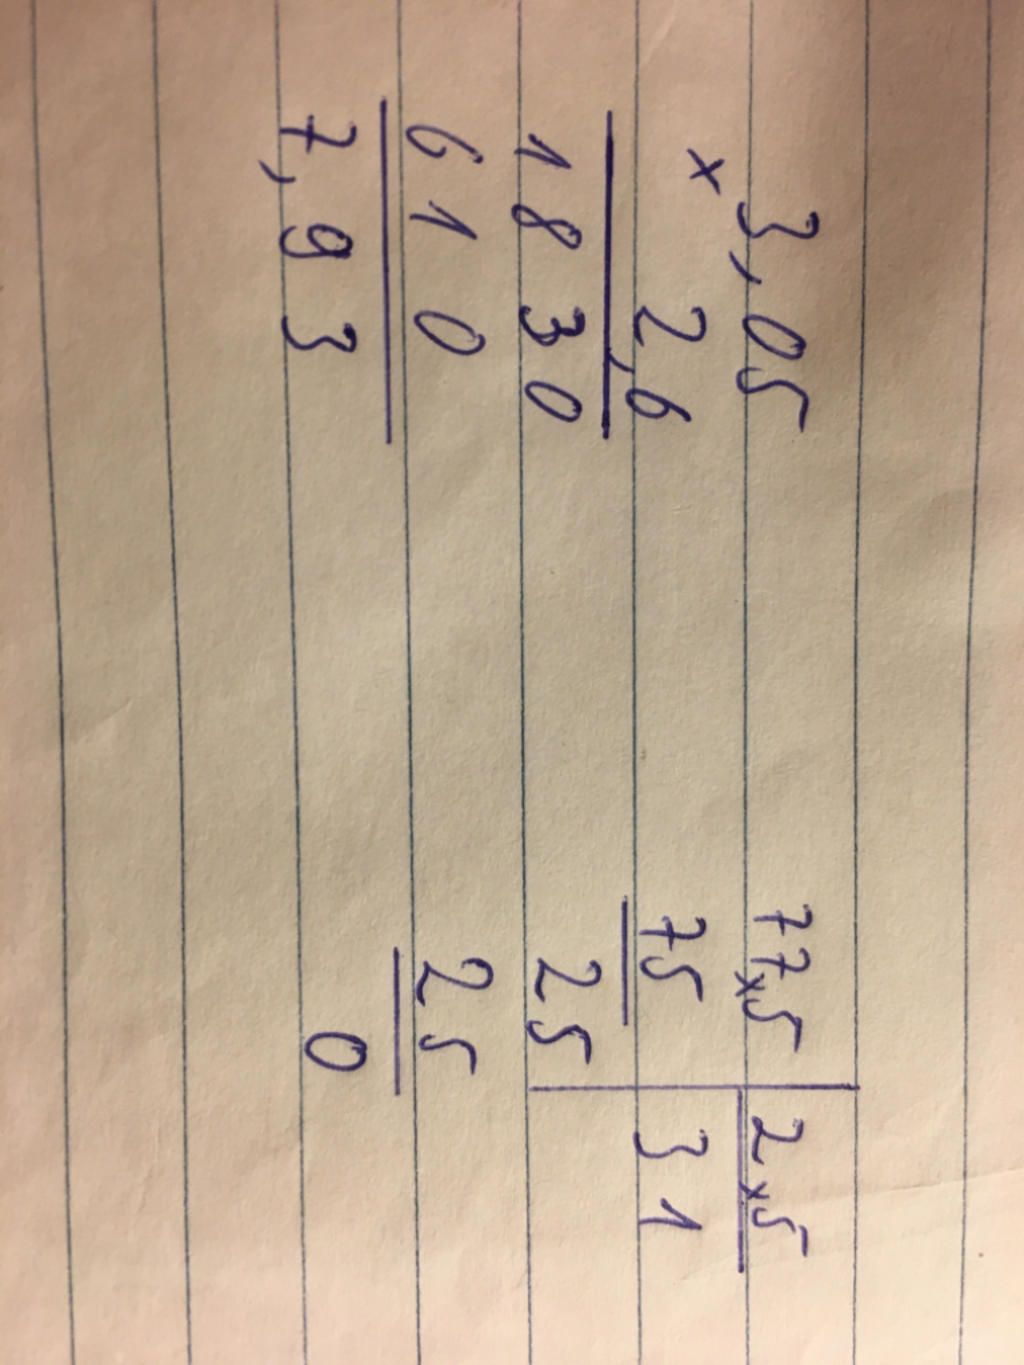 3,05
×
2,6
1830
610
7,93
77×5 2×5
75 31
25
25
0